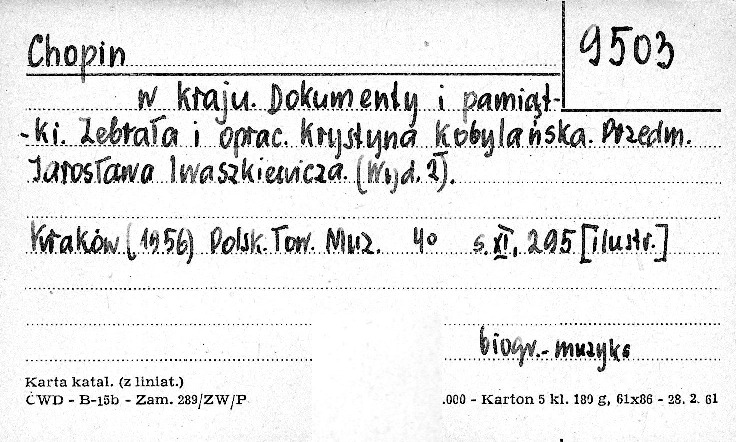 Chopin
9503
w kraju. Dokumenty i pamiąt-
-ki. Zebrała i oprac. Krystyna Kobylańska. Przedm.
Jarosława Iwaszkiewicza. (Wyd. I).
Kraków (1956) Polsk. Tow. Muz. 4° s. XI, 295 [ilustr.]
biogr. - muzyka
Karta katal. (z liniat.)
CWD - B-15b - Zam. 289/ZW/P
.000 - Karton 5 kl. 189 g, 61x86 - 28. 2. 61